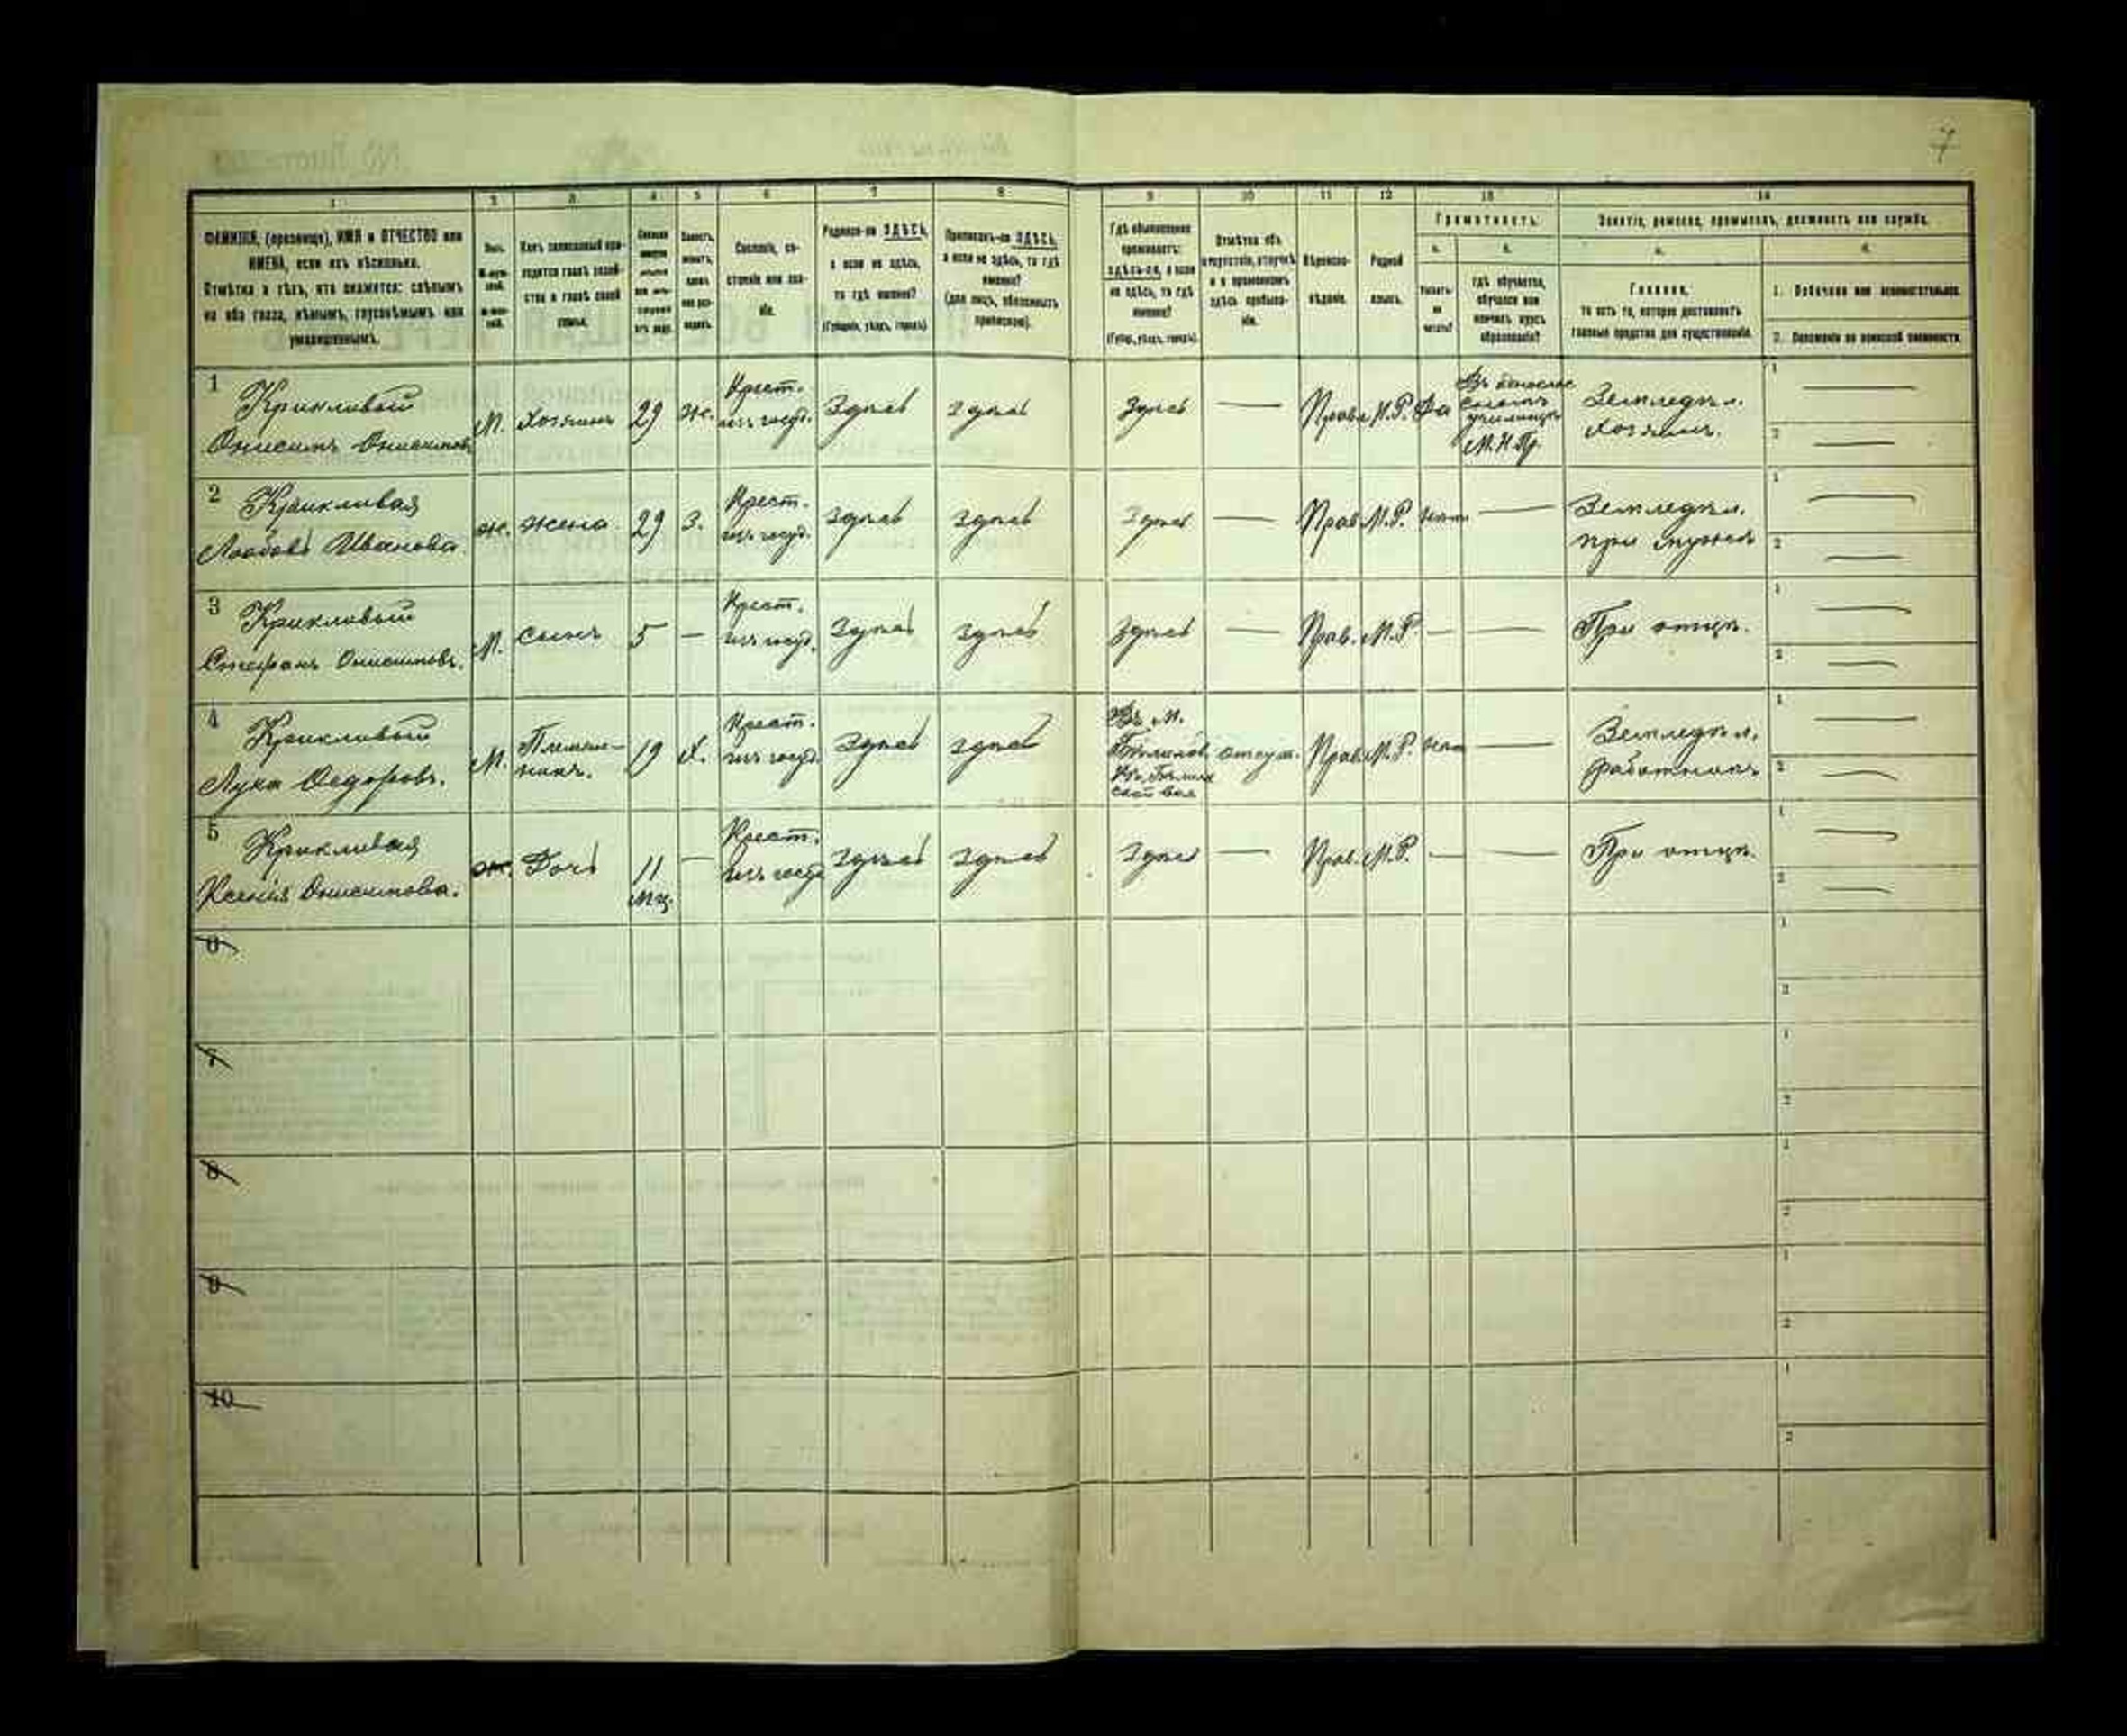 7
1 2 3 4 5 6 7 8 9 10 11 12 13 14
ФАМИЛІЯ, (прозвище), ИМЯ и ОТЧЕСТВО или
ИМЕНА, если ихъ нѣсколько.
Отмѣтка о тѣхъ, кто окажется: слѣпымъ
на оба глаза, нѣмымъ, глухонѣмымъ или
умалишеннымъ.
Полъ.
Какъ записанный при-
ходится главѣ хозяй-
ства и главѣ своей
семьи.
Сословіе, со-
стояніе или зва-
ніе.
Родился-ли ЗДѢСЬ,
а если не здѣсь,
то гдѣ именно?
(Губернія, уѣздъ, городъ).
Приписанъ-ли ЗДѢСЬ,
а если не здѣсь, то гдѣ
именно?
(для лицъ, обязанныхъ
припискою).
Гдѣ обыкновенно
проживаетъ:
здѣсь-ли, а если
не здѣсь, то гдѣ
именно?
(Губер., уѣздъ, городъ).
Отмѣтка объ
отсутствіи, отлучкѣ
и о временномъ
здѣсь пребыва-
ніи.
Вѣроиспо-
вѣданіе.
Родной
языкъ.
Грамотность.
а.
Умѣетъ-
ли
читать?
б.
гдѣ обучается,
обучался или
кончилъ курсъ
образованія?
Занятіе, ремесло, промыселъ, должность или служба.
а.
Главное,
то есть то, которое доставляетъ
главныя средства для существованія.
б.
1. Побочное или вспомогательное.
2. Положеніе по воинской повинности.
1 Крикливый
Онисимъ Онисимовъ
М. Хозяинъ 29 ж. Крест. изъ госуд. Здѣсь Здѣсь Здѣсь — Правс. М.Р. Да
училищѣ
М.Н.Пр.
Земледѣл.
Хозяинъ.
1 —
2 —
2 Крикливая
Любовь Иванова.
ж. жена 29 З. Крест. изъ госуд. Здѣсь Здѣсь Здѣсь — Прав. М.Р. нѣтъ —
Земледѣл.
при мужѣ
1 —
2 —
3 Крикливый
Стефанъ Онисимовъ.
М. Сынъ 5 — Крест. изъ госуд. Здѣсь Здѣсь Здѣсь — Прав. М.Р. — — При отцѣ.
1 —
2 —
4 Крикливый
Лука Ѳедоровъ.
М. Племян-
никъ. 19 Х. Крест. изъ госуд. Здѣсь Здѣсь
Въ м.
отсут. Прав. М.Р. нѣтъ —
Земледѣл.
работникъ
1 —
2 —
5 Крикливая
Ксенія Онисимова.
ж. Дочь 11
мц. — Крест. изъ госуд. Здѣсь Здѣсь Здѣсь — Прав. М.Р. — — При отцѣ.
1 —
2 —
6
1
2
7
1
2
8
1
2
9
1
2
10
1
2